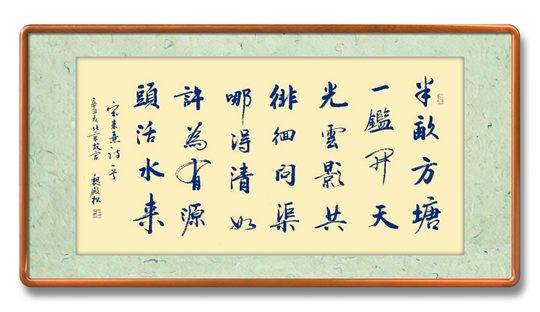 半畝方塘
一鑑開天
光雲影共
徘徊問渠
哪得清如
許為有源
頭活水来
宋朱熹詩
魏殿松